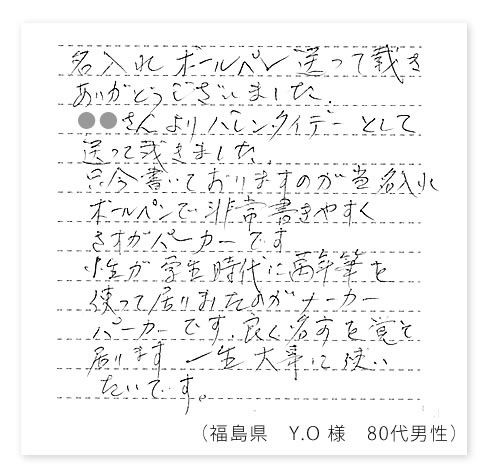 名入れボールペン送って戴き
ありがとうございました。
●●さんよりバレンタイデーとして
送って戴きました。
只今書いておりますのが当名入れ
ボールペンで非常書きやすく
さすがパーカーです
小生が学生時代に萬年筆を
使って居りましたのがメーカー
パーカーです。良く名前を覚えて
居ります 一生大事に使い
たいです。
(福島県 Y.O 様 80代男性)